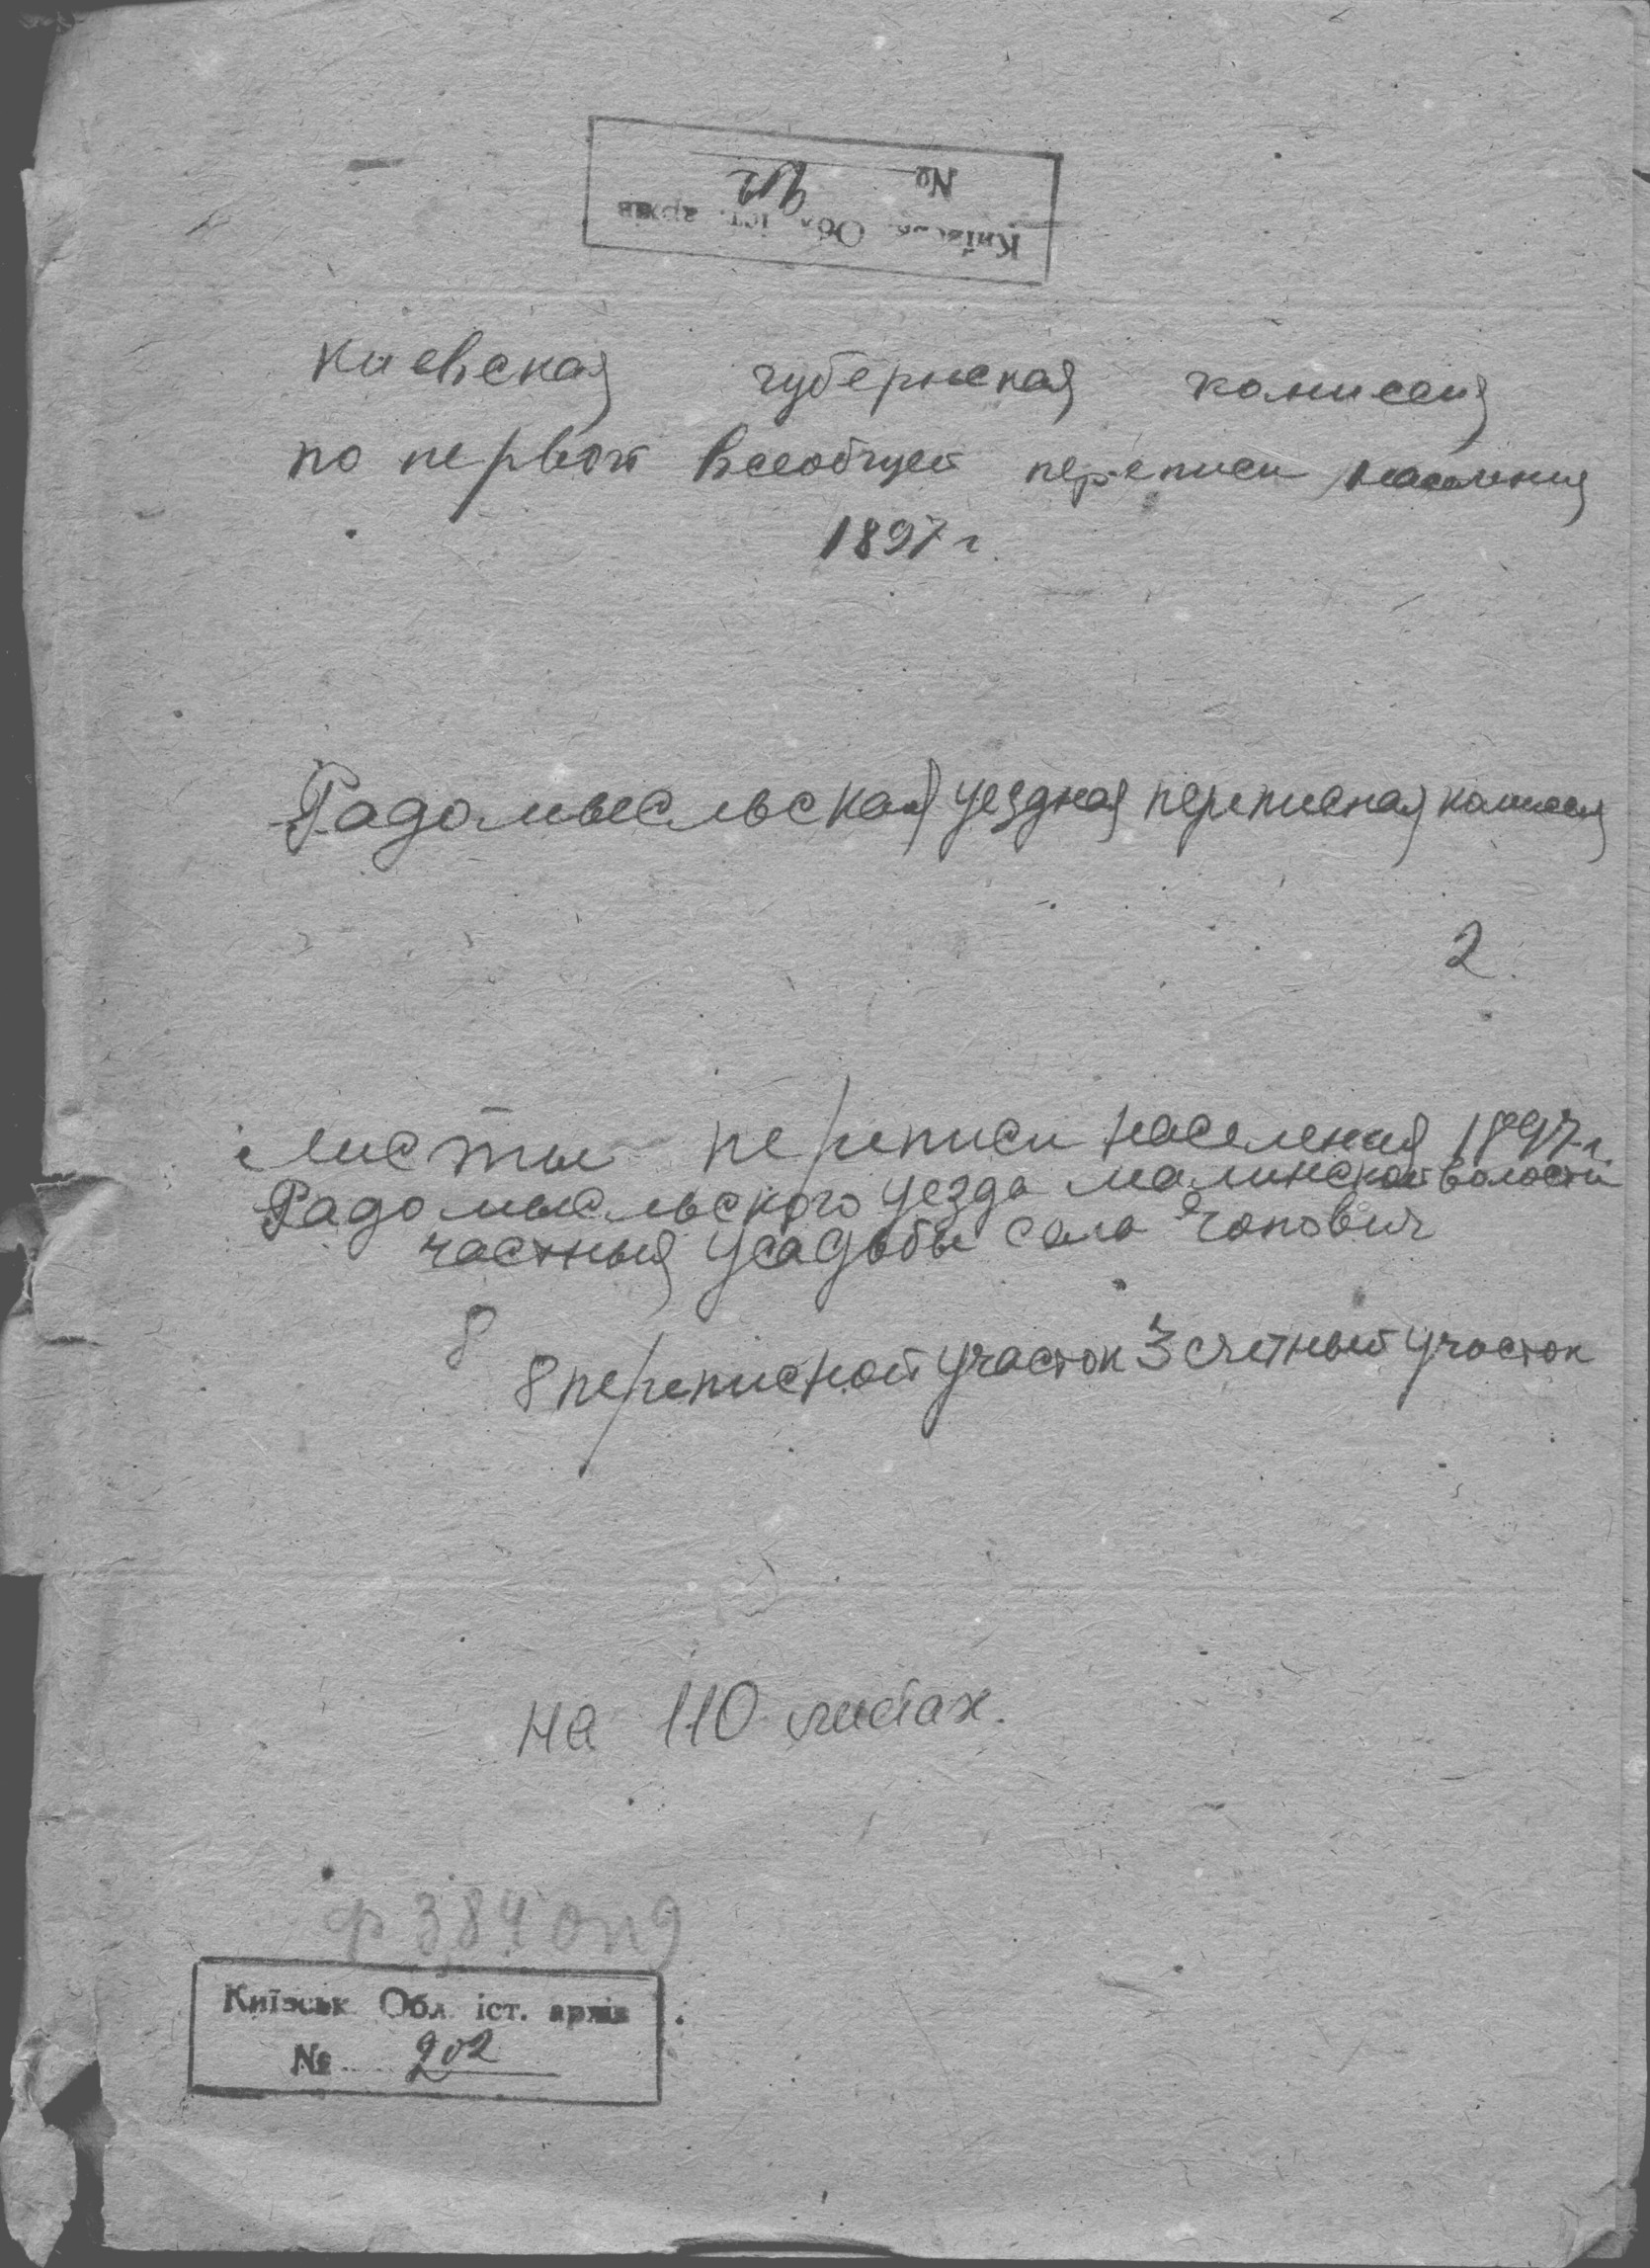 Київськ. Обл. іст. архів
№ 202
Киевская губернская комиссия
по первой всеобщей переписи населения
1897 г.
Радомысльская уездная переписная комиссия
2
Листы переписи населения 1897 г.
Радомысльского уезда Малинской волости
частныя усадьбы села Чопович
8
8 переписной участок 3 счетный участок
на 110 листах.
ф 384 оп 9
Київськ. Обл. іст. архів
№ 202